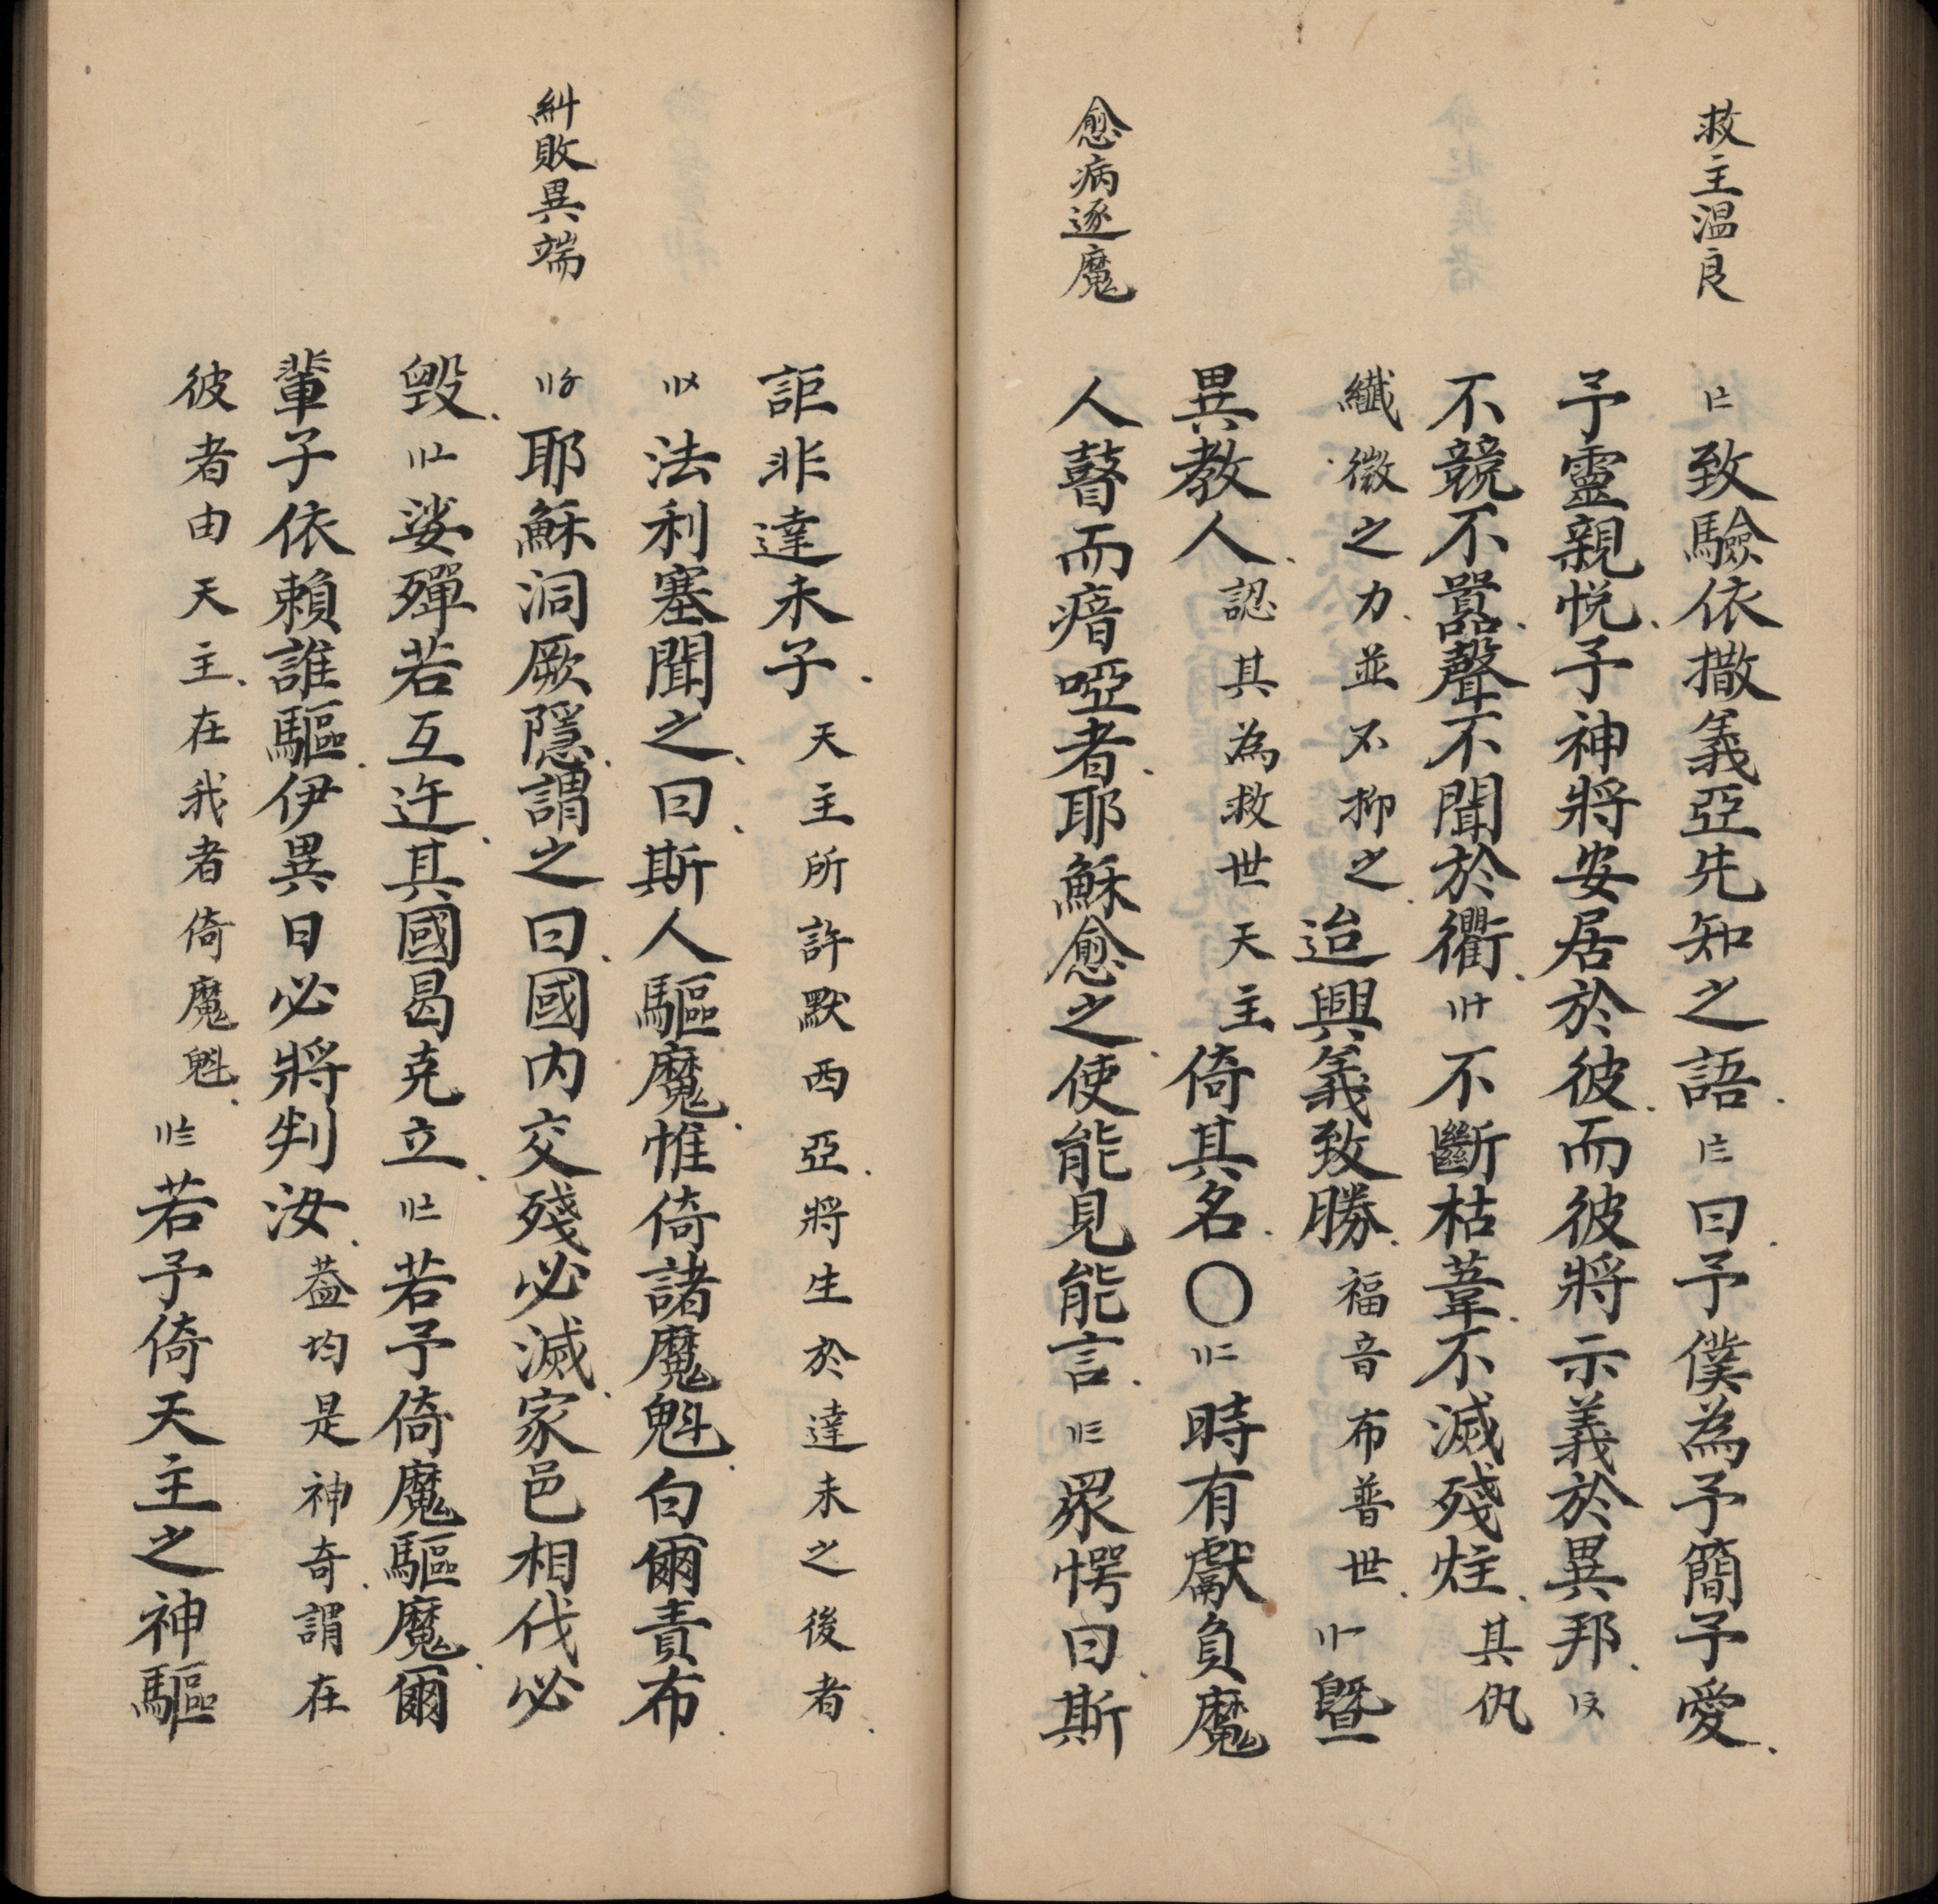 救主温良
〢致驗依撒義亞先知之語〣曰予僕為予簡予愛
予靈親悅予神將安居於彼而彼將示義於異邦
不競不嚣聲不聞於衢不斷枯葦不滅殘炷其仇
纖微之力並不抑之迨興義致勝福音布普世暨
異教人認其為救世天主倚其名〇時有獻負魔
愈病逐魔
人瞽而瘖啞者耶穌愈之使能見能言眾愕曰斯
詎非達未子天主所許默西亞將生於達未之後者
法利塞聞之曰斯人驅魔惟倚諸魔魁白爾責布
糾敗異端
耶穌洞厥隱謂之曰國内交殘必滅家邑相伐必
毁娑殫若互迕其國曷克立若予倚魔驅魔爾
輩子依賴誰驅伊異日必將判汝葢均是神奇謂在
彼者由天主在我者倚魔魁若予倚天主之神驅